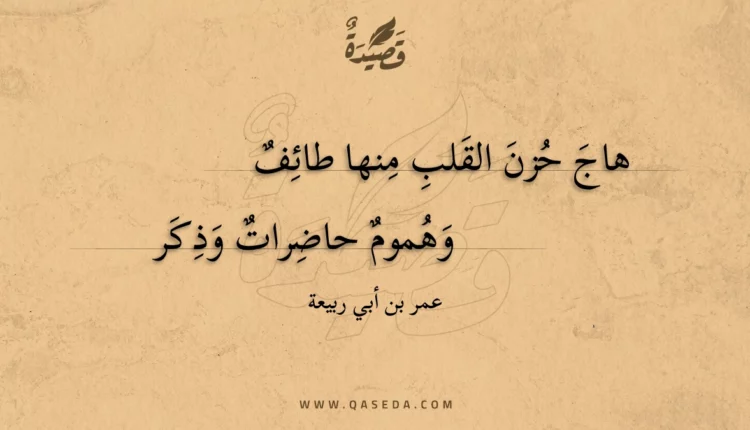 قَصِيدَةٌ
هاجَ حُزنَ القَلبِ مِنها طائِفٌ
وَهُمومٌ حاضِراتٌ وَذِكَر
عمر بن أبي ربيعة
WWW.QASEDA.COM